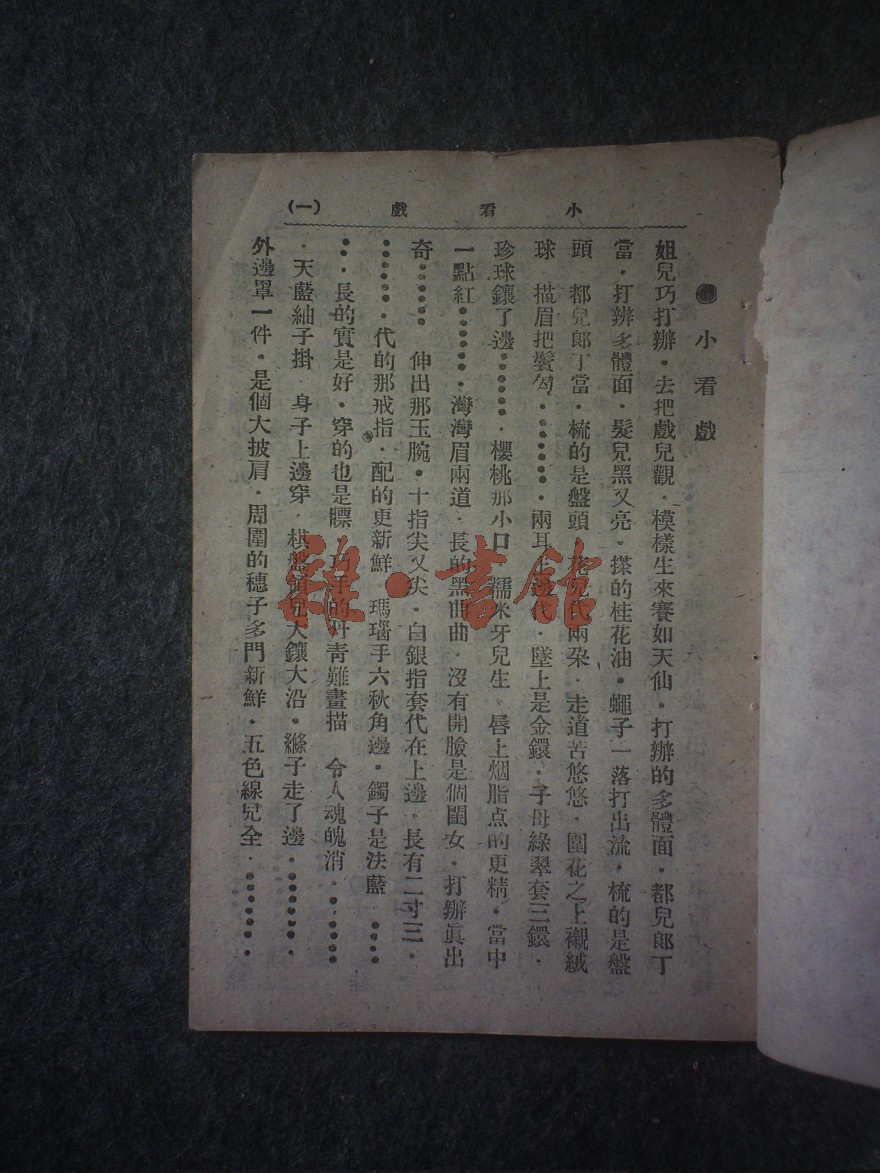 小看戲 (一)
●小看戲
姐兒巧打辦．去把戲兒觀．模樣生來賽如天仙．打辦的多體面．都兒郎丁
當．打辦多體面．髮兒黑又亮．搽的桂花油．蠅子一落打出流．梳的是盤
頭 都兒郎丁當．梳的是盤頭 花兒代兩朶．走道苦悠悠．圍花之上襯絨
球 描眉把鬢勾．●●●●●●．兩耳上邊代．墜上是金鐶．子母綠翠套三鐶．
珍球鑲了邊．●●●●●●．櫻桃那小口 糯米牙兒生 唇上烟脂点的更精．當中
一點紅●●●●●●．灣灣眉兩道．長的黑曲曲．沒有開臉是個閨女．打辦真出
奇●●●●●● 伸出那玉腕．十指尖又尖．白銀指套代在上邊．長有二寸三．
●●●●●●．代的那戒指．配的更新鮮 瑪瑙手六秋角邊．鐲子是法藍 ●●●●
●●．長的實是好．穿的也是膘 巧手的丹青難畫描 令人魂魄消．●●●●●●
．天藍紬子掛 身子上邊穿．棋盤領兒大鑲大沿．縧子走了邊．●●●●●●．
外邊罩一件．是個大披肩．周圍的穗子多門新鮮．五色線兒全．●●●●●●．
雜·書館